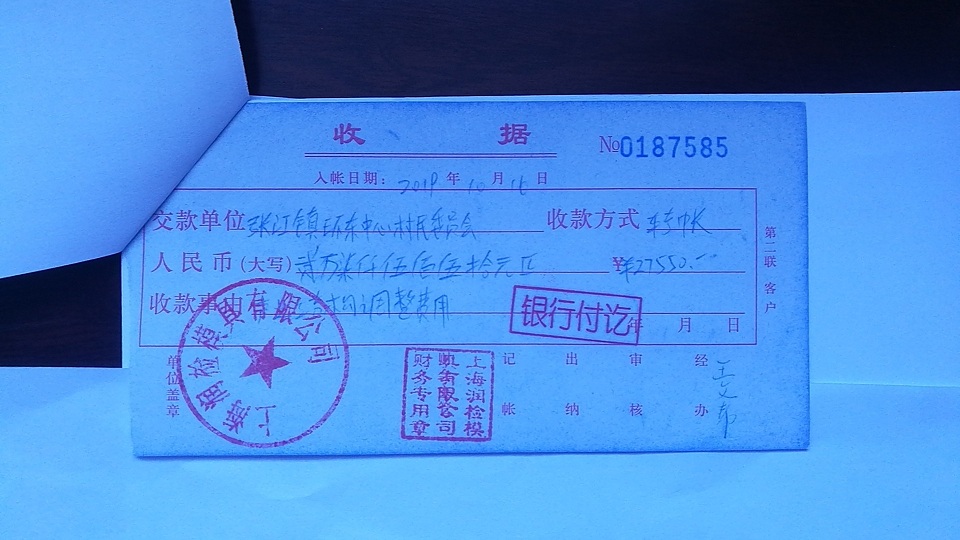 收 据
№0187585
入帐日期: 2019 年 10 月 16 日
交款单位 张江镇环东中心村民委员会 收款方式 转帐
人民币(大写) 贰万柒仟伍佰伍拾元正 ¥27550.-
收款事由 调整费用
银行付讫
年 月 日
第二联 客户
单位盖章
上海润检模具有限公司
上海润检模具有限公司财务专用章
记帐 出纳 审核 经办